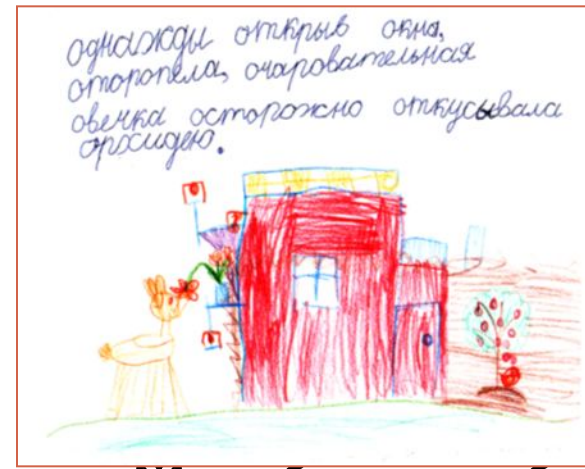 однажды открыв окна,
оторопела, очаровательная
овечка осторожно откусывала
орхидею.